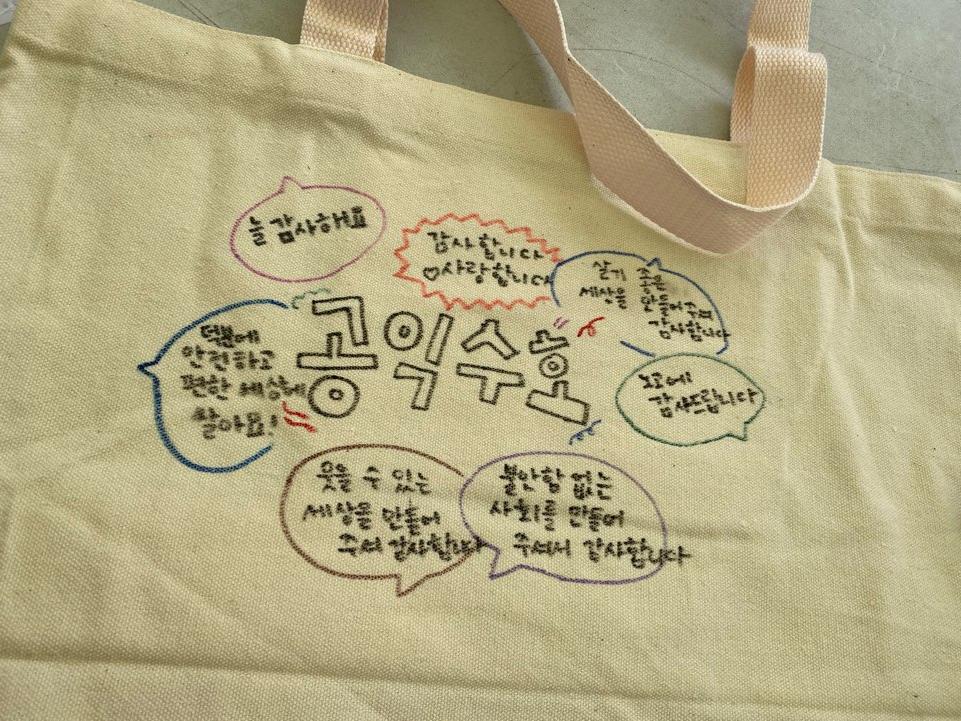 늘 감사해요
감사합니다
♡사랑합니다
살기 좋은
세상을 만들어 주셔
감사합니다
덕분에
안전하고
편한 세상에
살아요!
공익수호
노고에
감사드립니다
웃을 수 있는
세상을 만들어
주셔 감사합니다
불안함 없는
사회를 만들어
주셔서 감사합니다